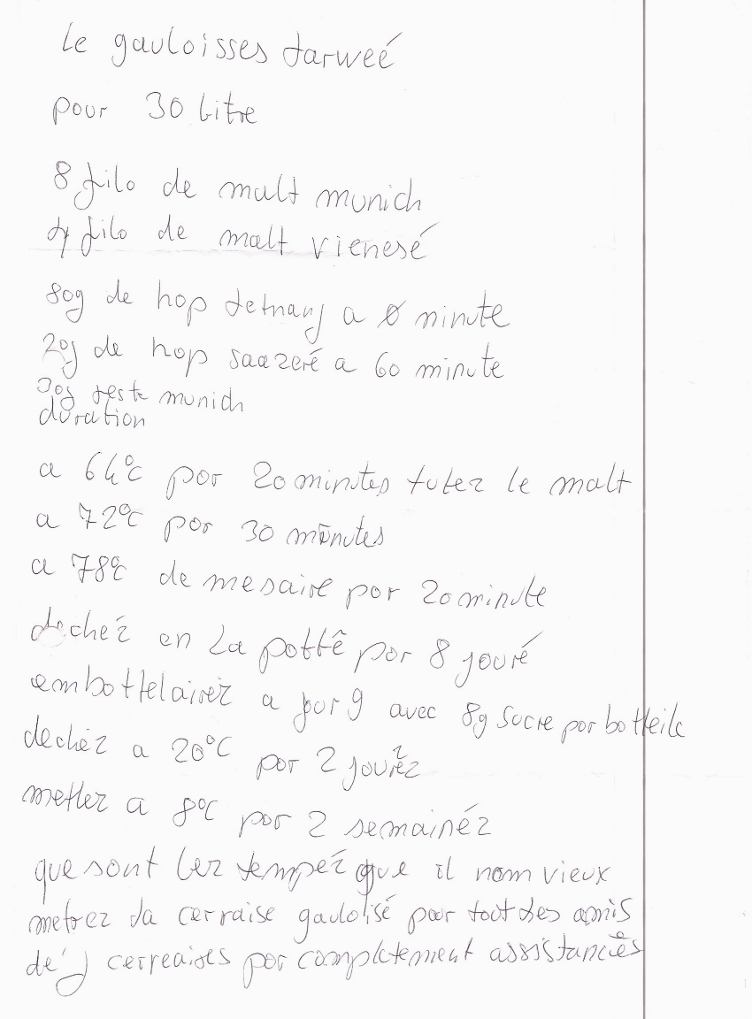 le gauloisses tarweé
pour 30 litre
8 filo de malt munich
4 filo de malt vienesé
80g de hop tetnanj a 0 minute
20g de hop saazeré a 60 minute
30g reste munich
duration
a 64°c por 20 minutes tutez le malt
a 72°c por 30 minutes
a 78°c de mesaire por 20 minute
dechéz en la pottê por 8 jouré
embottelairez a jour 9 avec 8g sucre por botteile
dechéz a 20°C por 2 jouréz
metlez a 8°C por 2 semainéz
que sont lez tempéz que il nom vieux
metrez da cerraise gaulolisé pour tout des amis
de j cerreaises por completement assistancês